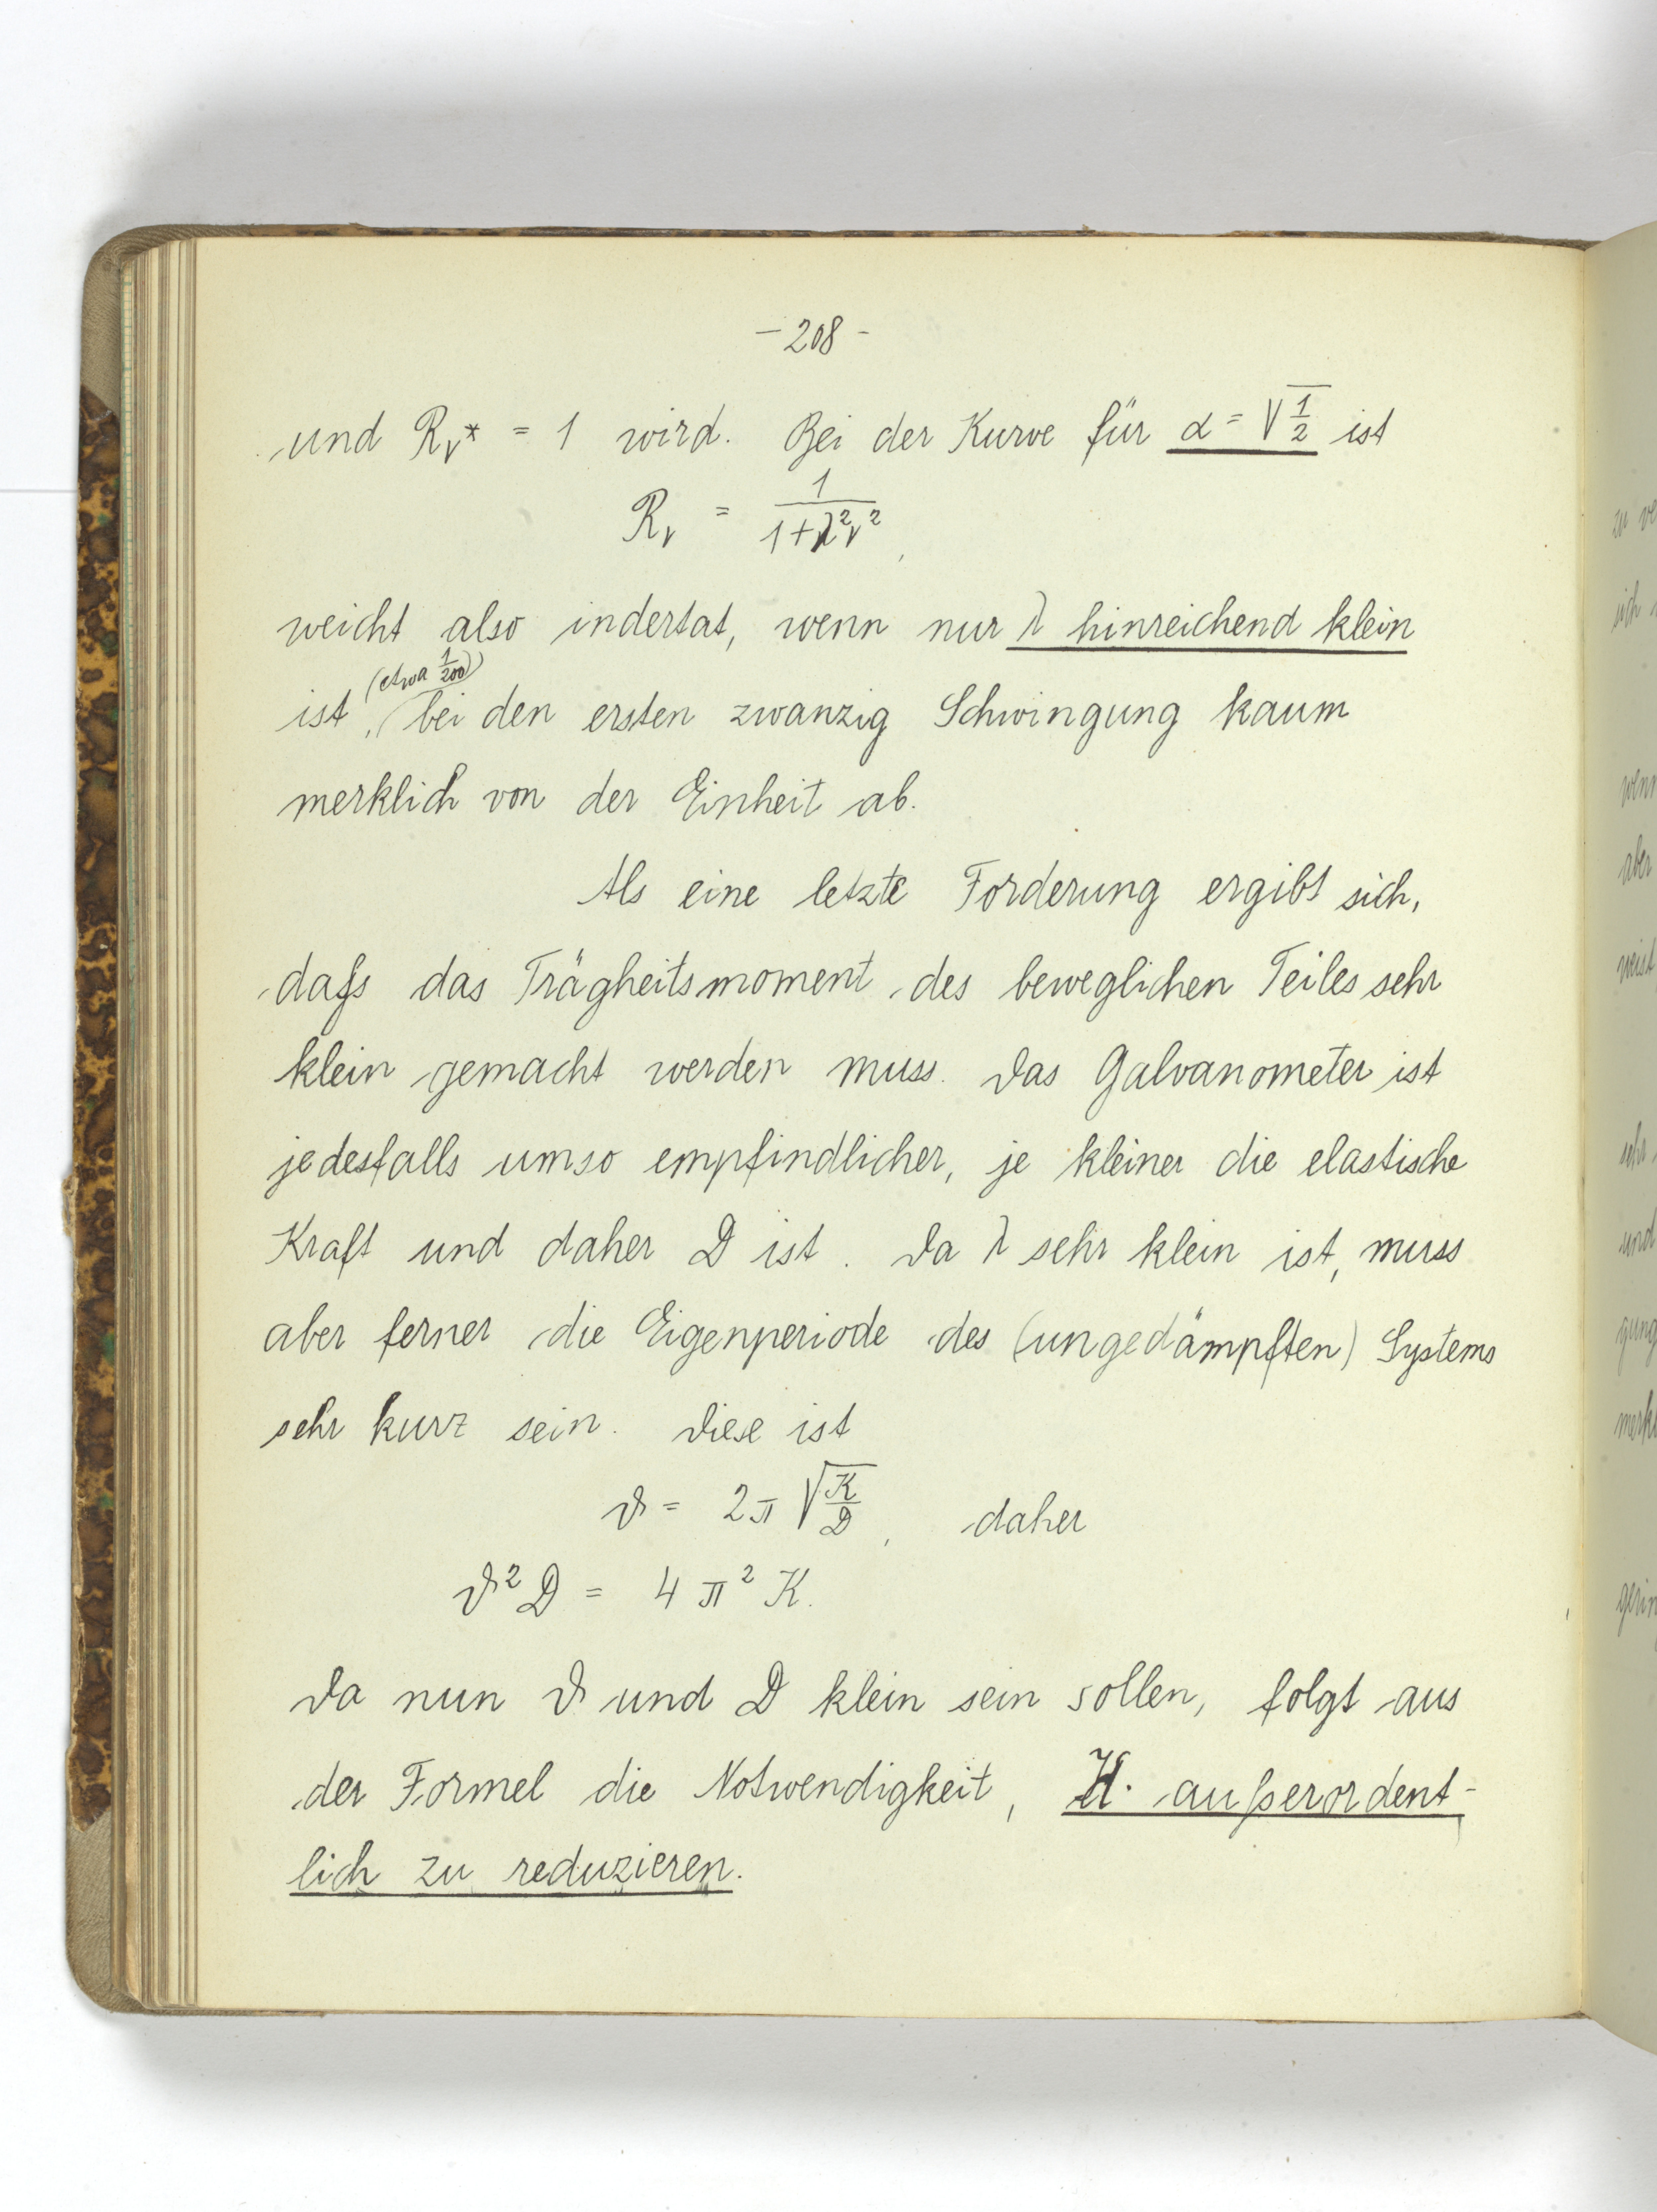 - 208 -
und Rᵥ* = 1 wird. Bei der Kurve für α = √1/2 ist
Rᵥ = 1/(1+λ²ν²),
weicht also indertat, wenn nur λ hinreichend klein
(etwa 1/200)
ist, bei den ersten zwanzig Schwingung kaum
merklich von der Einheit ab.
Als eine letzte Forderung ergibt sich,
dass das Trägheitsmoment des beweglichen Teiles sehr
klein gemacht werden muss. Das Galvanometer ist
jedesfalls umso empfindlicher, je kleiner die elastische
Kraft und daher D ist. Da λ sehr klein ist, muss
aber ferner die Eigenperiode des (ungedämpften) Systems
sehr kurz sein. Diese ist
ϑ = 2π √K/D, daher
ϑ²D = 4π²K.
Da nun ϑ und D klein sein sollen, folgt aus
der Formel die Notwendigkeit, K. außerordent-
lich zu reduzieren.